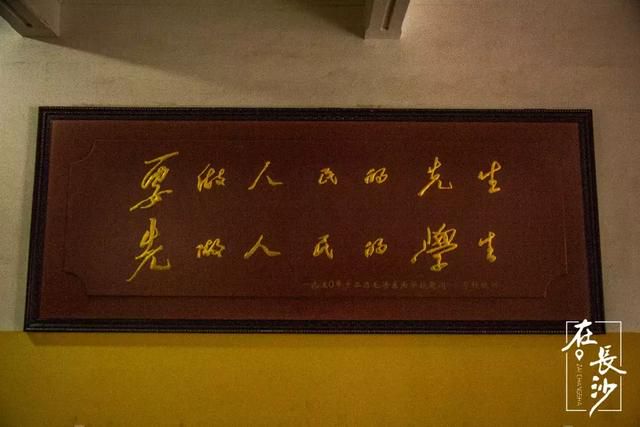 要做人民的先生
先做人民的學生
一九五〇年十二月毛泽东为
在長沙
ZAI CHANGSHA